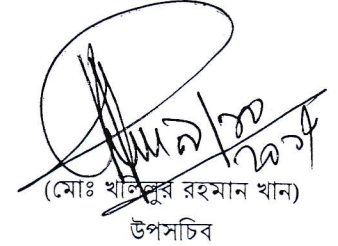 (মোঃ খলিলুর রহমান খান)
উপসচিব